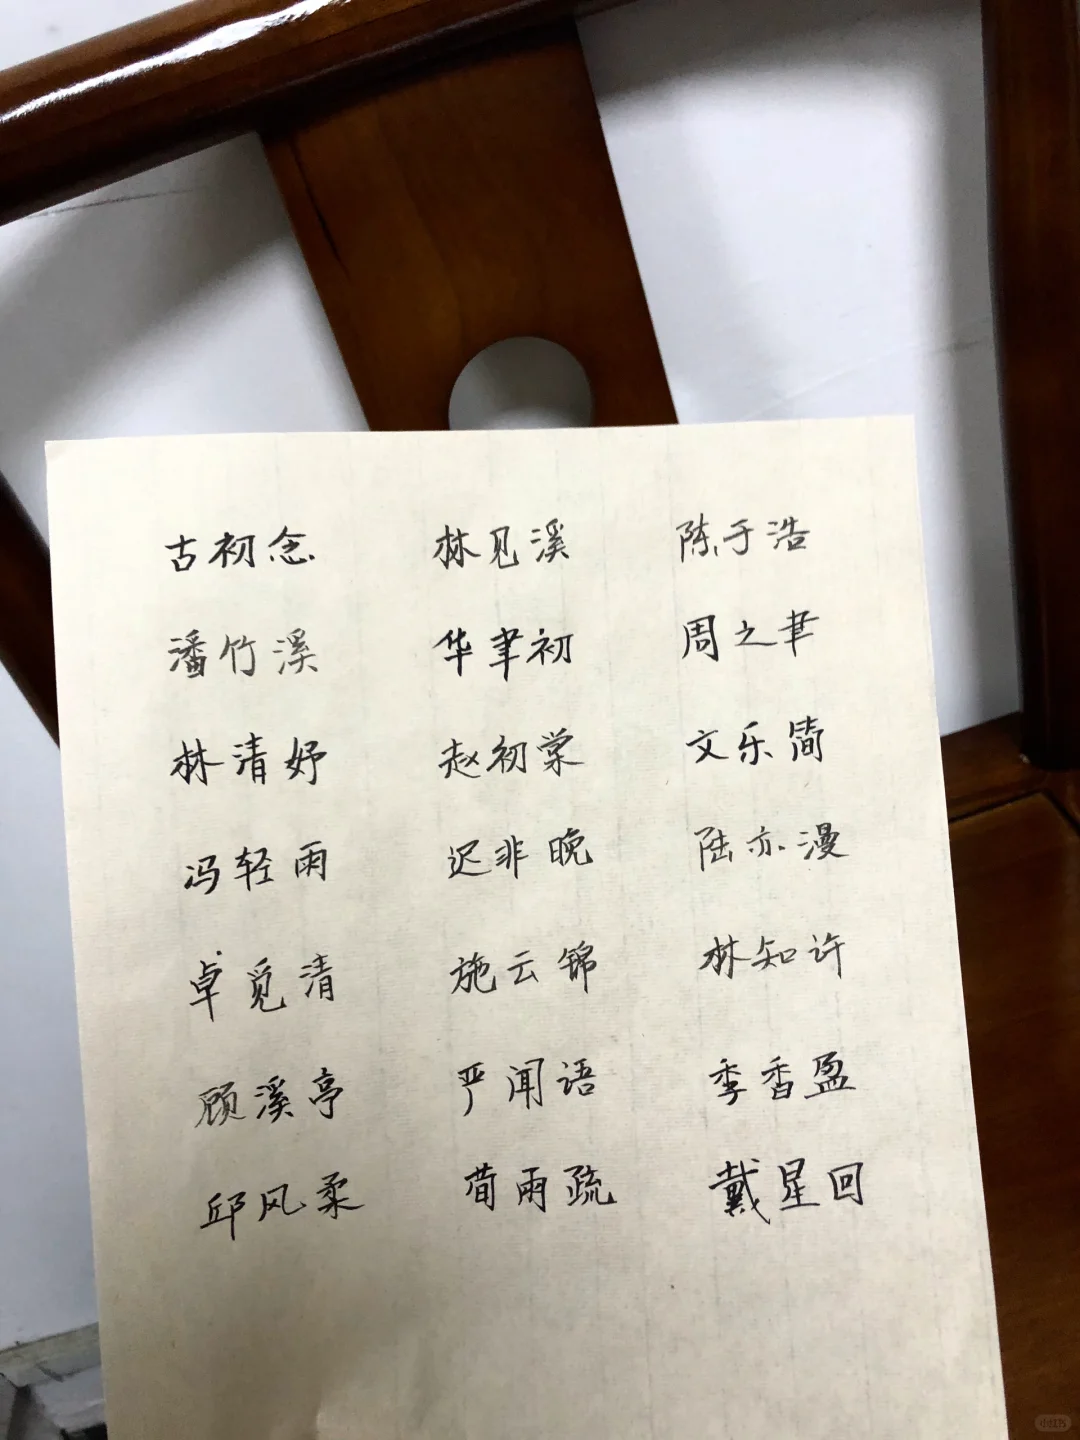 古初念 林见溪 陈于浩
潘竹溪 华聿初 周之聿
林清妤 赵初棠 文乐简
冯轻雨 迟非晚 陆亦漫
卓觅清 施云锦 林知许
顾溪亭 严闻语 季香盈
邱风柔 荀雨疏 戴星回
小红书